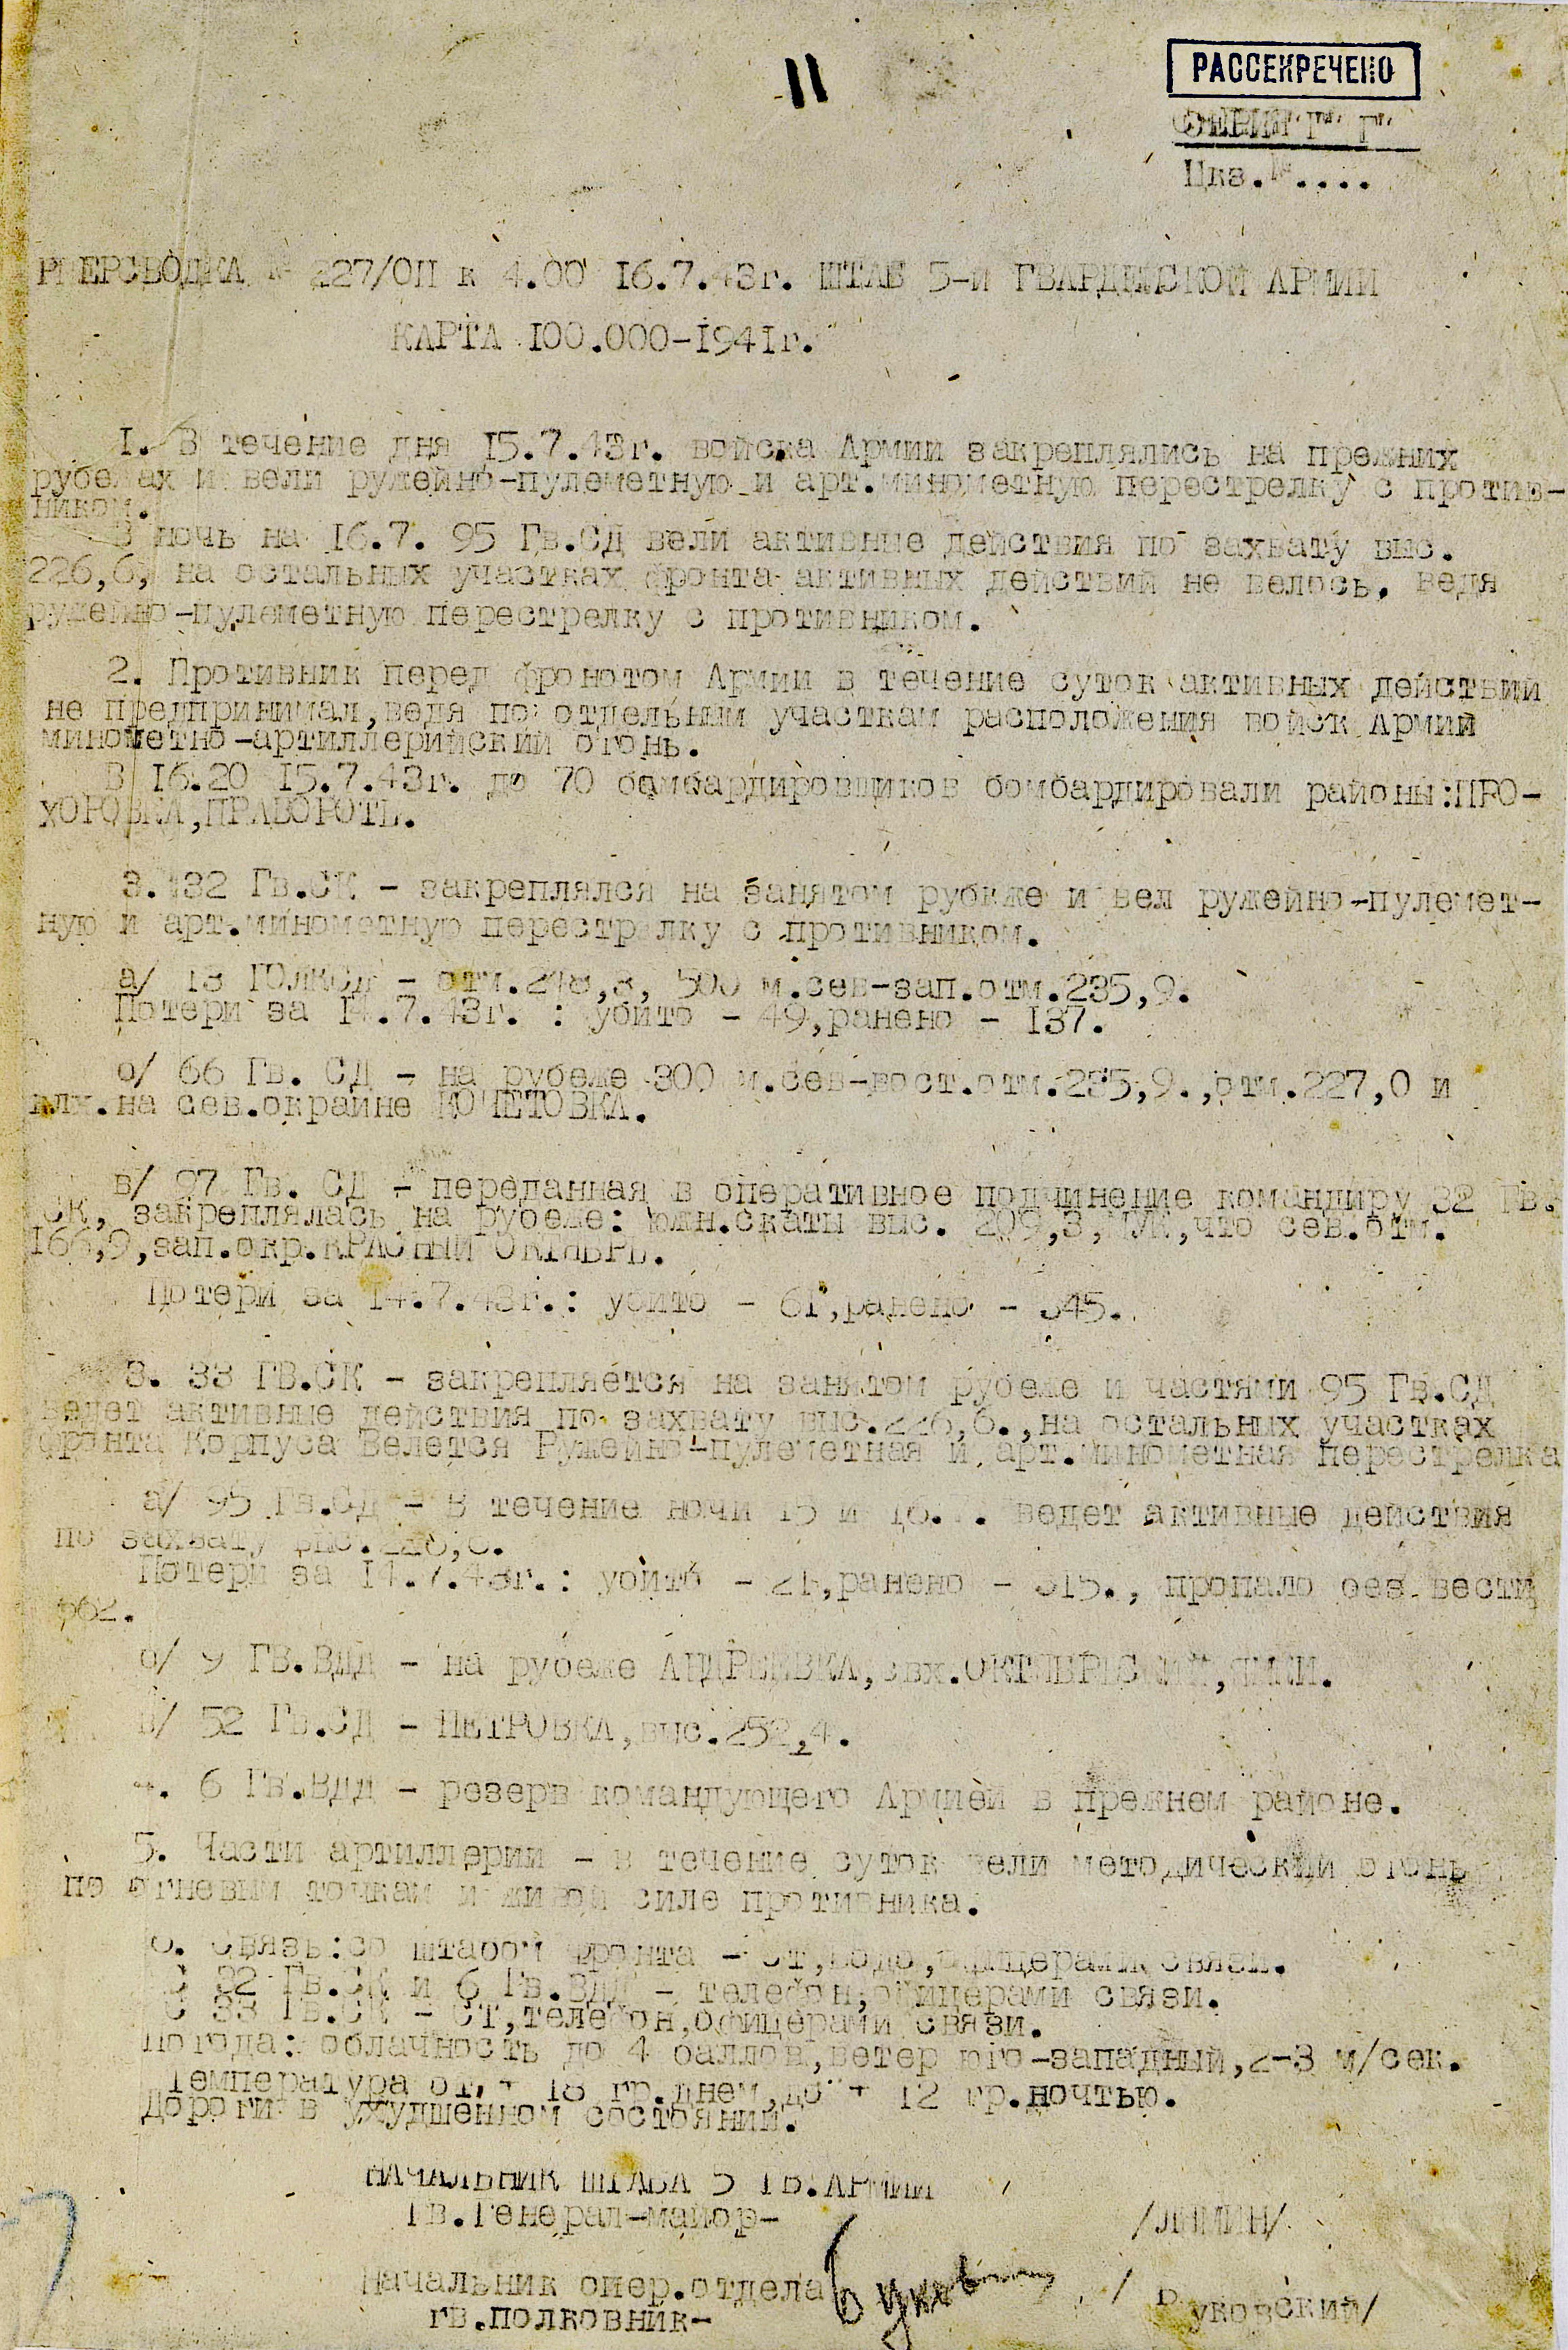 11
РАССЕКРЕЧЕНО
СЕРИЯ "Г"
Цкз.№....
ЕРСВОДКА № 227/ОП к 4.00 16.7.43г. ШТАБ 5-й ГВАРДЕЙСКОЙ АРМИИ
КАРТА 100.000-1941г.
1. В течение дня 15.7.43г. войска Армии закреплялись на прежних
рубежах и вели ружейно-пулеметную и арт.минометную перестрелку с против-
ником.
В ночь на 16.7. 95 Гв.СД вели активные действия по захвату выс.
226,6, на остальных участках фронта активных действий не велось, ведя
ружейно-пулеметную перестрелку с противником.
2. Противник перед фронотом Армии в течение суток активных действий
не предпринимал,ведя по отдельным участкам расположения войск Армии
минометно-артиллерийский огонь.
В 16.20 15.7.43г. до 70 бомбардировщиков бомбардировали районы:ПРО-
ХОРОВКА,ПРАВОРОТЬ.
3. 32 Гв.СК - закреплялся на занятом рубеже и вел ружейно-пулемет-
ную и арт.минометную перестрелку с противником.
а/ 13 - отм.248,3, 500 м.сев-зап.отм.235,9.
Потери за 14.7.43г. : убито - 49,ранено - 137.
б/ 66 Гв. СД - на рубеже 300 м.сев-вост.отм.235,9.,отм.227,0 и
на сев.окраине КОЧЕТОВКА.
в/ 97 Гв. СД - переданная в оперативное подчинение командиру 32 Гв.
СК, закреплялась на рубеже: южн.скаты выс. 209,3, что сев.отм.
166,9,зап.окр.КРАСНЫЙ ОКТЯБРЬ.
Потери за 14.7.43г.: убито - 61,ранено - 345.
3. 33 ГВ.СК - закрепляется на занятом рубеже и частями 95 Гв.СД
ведет активные действия по захвату выс.226,6.,на остальных участках
фронта Корпуса Ведется Ружейно-пулеметная и арт.минометная перестрелка
а/ 95 Гв.СД - в течение ночи 15 и 16... ведет активные действия
по захвату выс.226,6.
Потери за 14.7.43г.: убито - 21,ранено - 315., пропало без вести
662.
б/ 9 ГВ.ВДД - на рубеже АНДРЕЕВКА,свх.ОКТЯБРЬСКИЙ,ЯМКИ.
в/ 52 Гв.СД - ПЕТРОВКА,выс.252,4.
4. 6 Гв.ВДД - резерв командующего Армией в прежнем районе.
5. Части артиллерии - в течение суток вели методический огонь
по огневым точкам и живой силе противника.
6. Связь:со штабом фронта - СТ,бодо,офицерами связи.
С 32 Гв.СК и 6 Гв.ВДД - телефон,офицерами связи.
С 33 Гв.СК - СТ,телефон,офицерами связи.
Погода: облачность до 4 баллов,ветер юго-западный,2-3 м/сек.
Температура от + 18 гр.днем,до + 12 гр.ночтью.
Дороги в ухудшенном состоянии.
НАЧАЛЬНИК ШТАБА 5 ГВ.АРМИИ
Гв.Генерал-майор-
/ЛЯМИН/
Начальник опер.отдела
гв.полковник-
Буковский
/ Буковский/